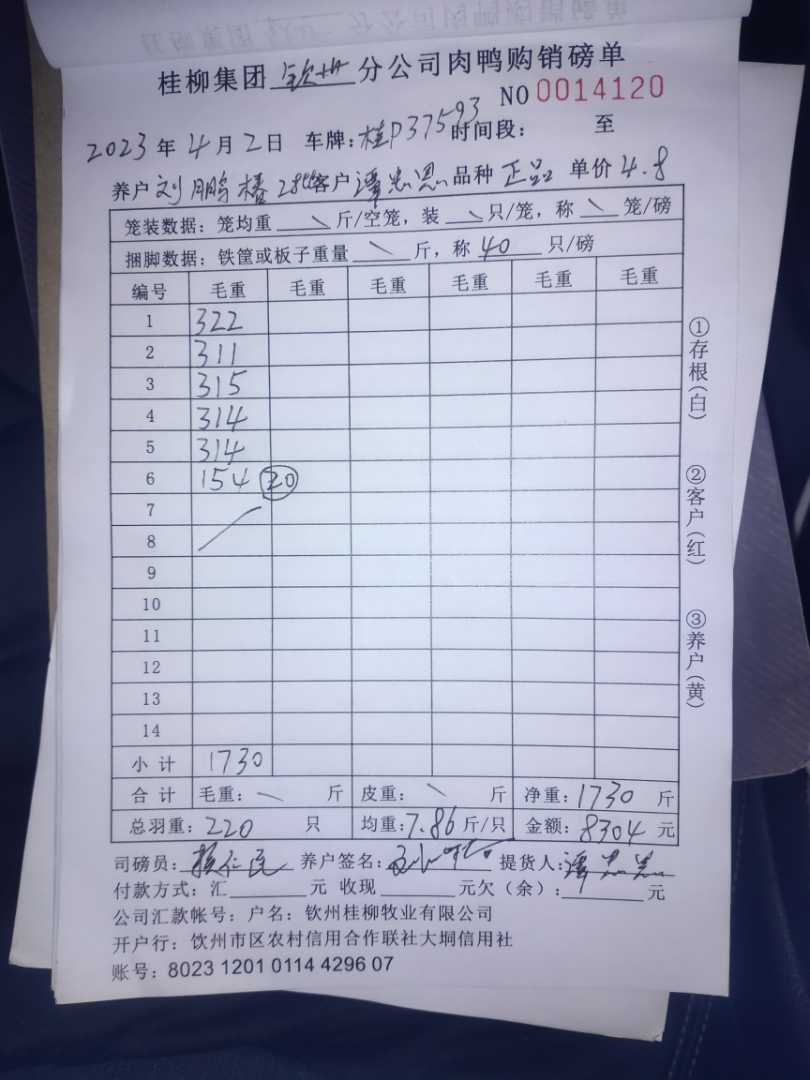 桂柳集团 钦州 分公司肉鸭购销磅单
NO 0014120
2023 年 4 月 2 日 车牌：桂P37593 时间段： 至
养户 刘鹏椿 28批 客户 谭忠恩 品种 正品 单价 4.8
笼装数据：笼均重 \ 斤/空笼，装 \ 只/笼，称 \ 笼/磅
捆脚数据：铁筐或板子重量 \ 斤，称 40 只/磅
编号 毛重 毛重 毛重 毛重 毛重 毛重
1 322
2 311
3 315
4 314
5 314
6 154 20
7
8
9
10
11
12
13
14
小计 1730
合计 毛重： \ 斤 皮重： \ 斤 净重：1730 斤
总羽重：220 只 均重：7.86 斤/只 金额：8304 元
司磅员： 养户签名： 提货人：谭忠恩
付款方式：汇 元 收现 元欠（余）： 元
公司汇款帐号：户名：钦州桂柳牧业有限公司
开户行：钦州市区农村信用合作联社大垌信用社
账号：8023 1201 0114 4296 07
①存根（白）
②客户（红）
③养户（黄）